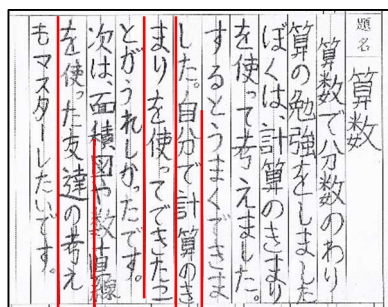 題名
算数
算数で分数のわり
算の勉強をしました
ぼくは、計算のきまり
を使って考えました。
するとうまくできま
した。自分で計算のき
まりを使ってできたこ
とがうれしかったです。
次は、面積図や数直線
を使った友達の考え
もマスターしたいです。